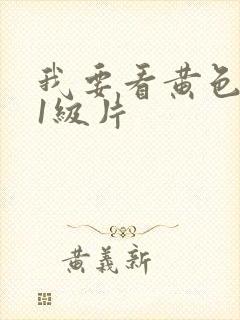 我要看黄色
1級片
黄義新